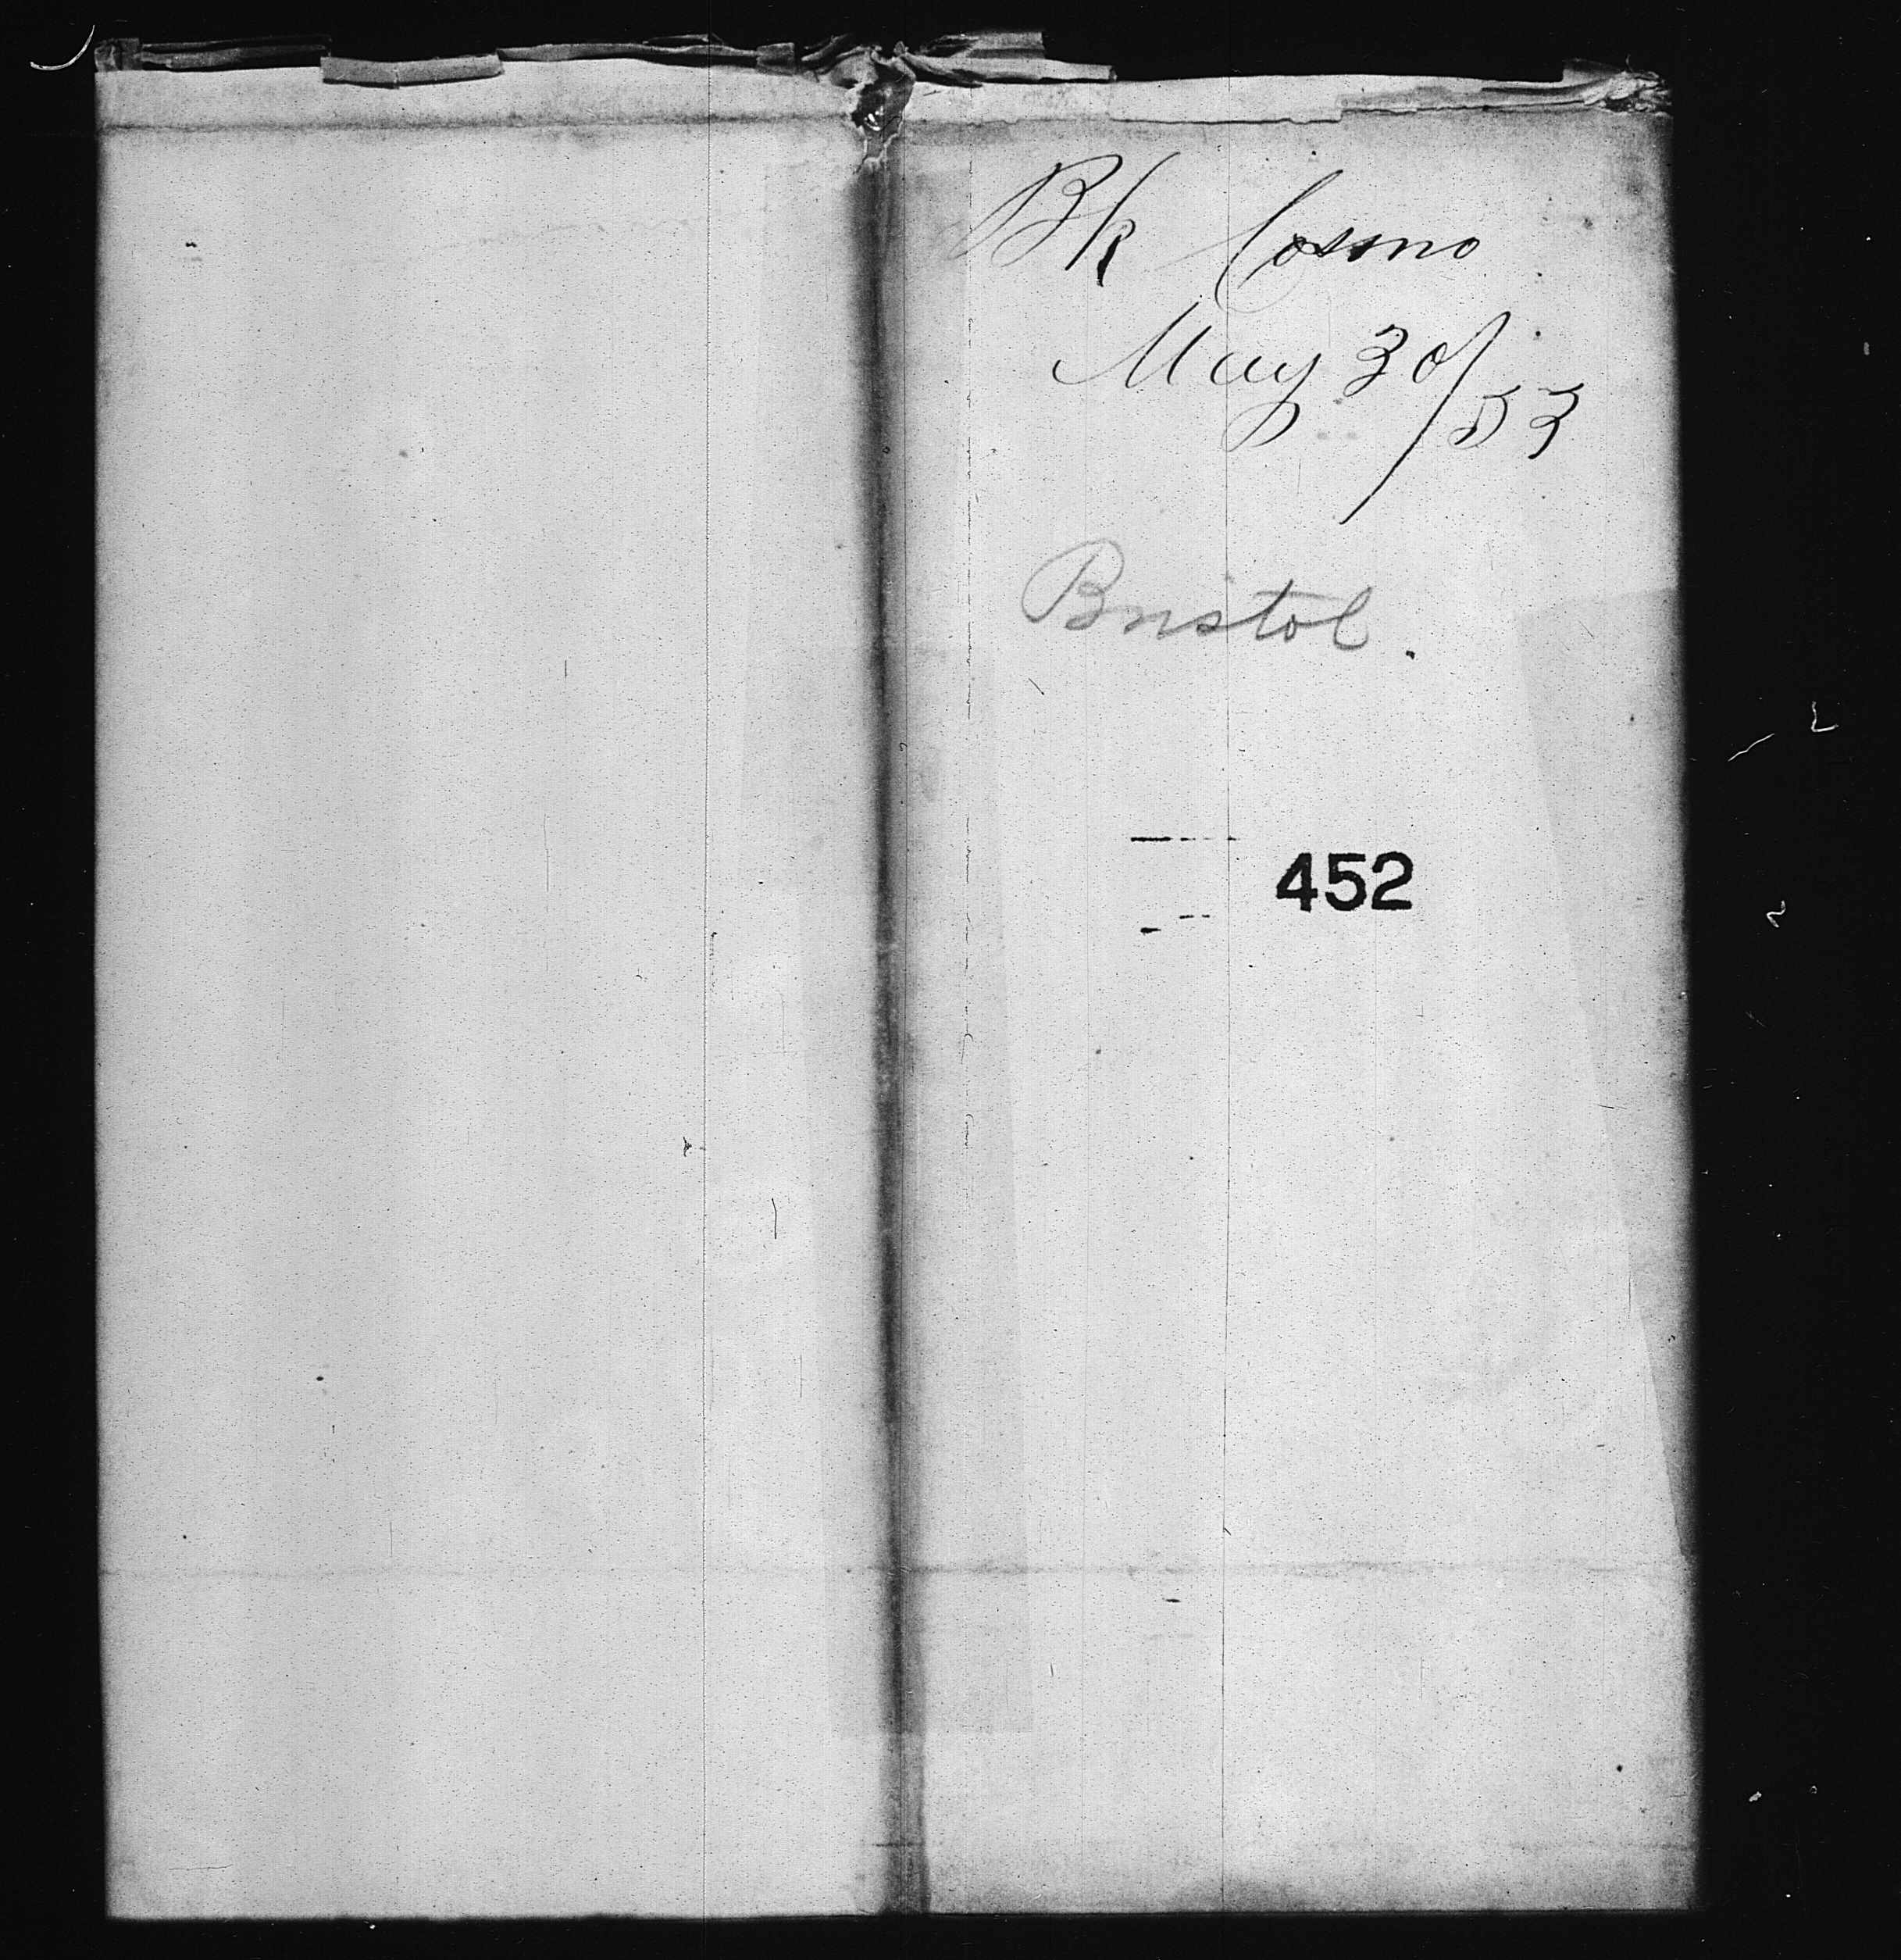 Bk Cosmo
May 30/53
Bristol.
452